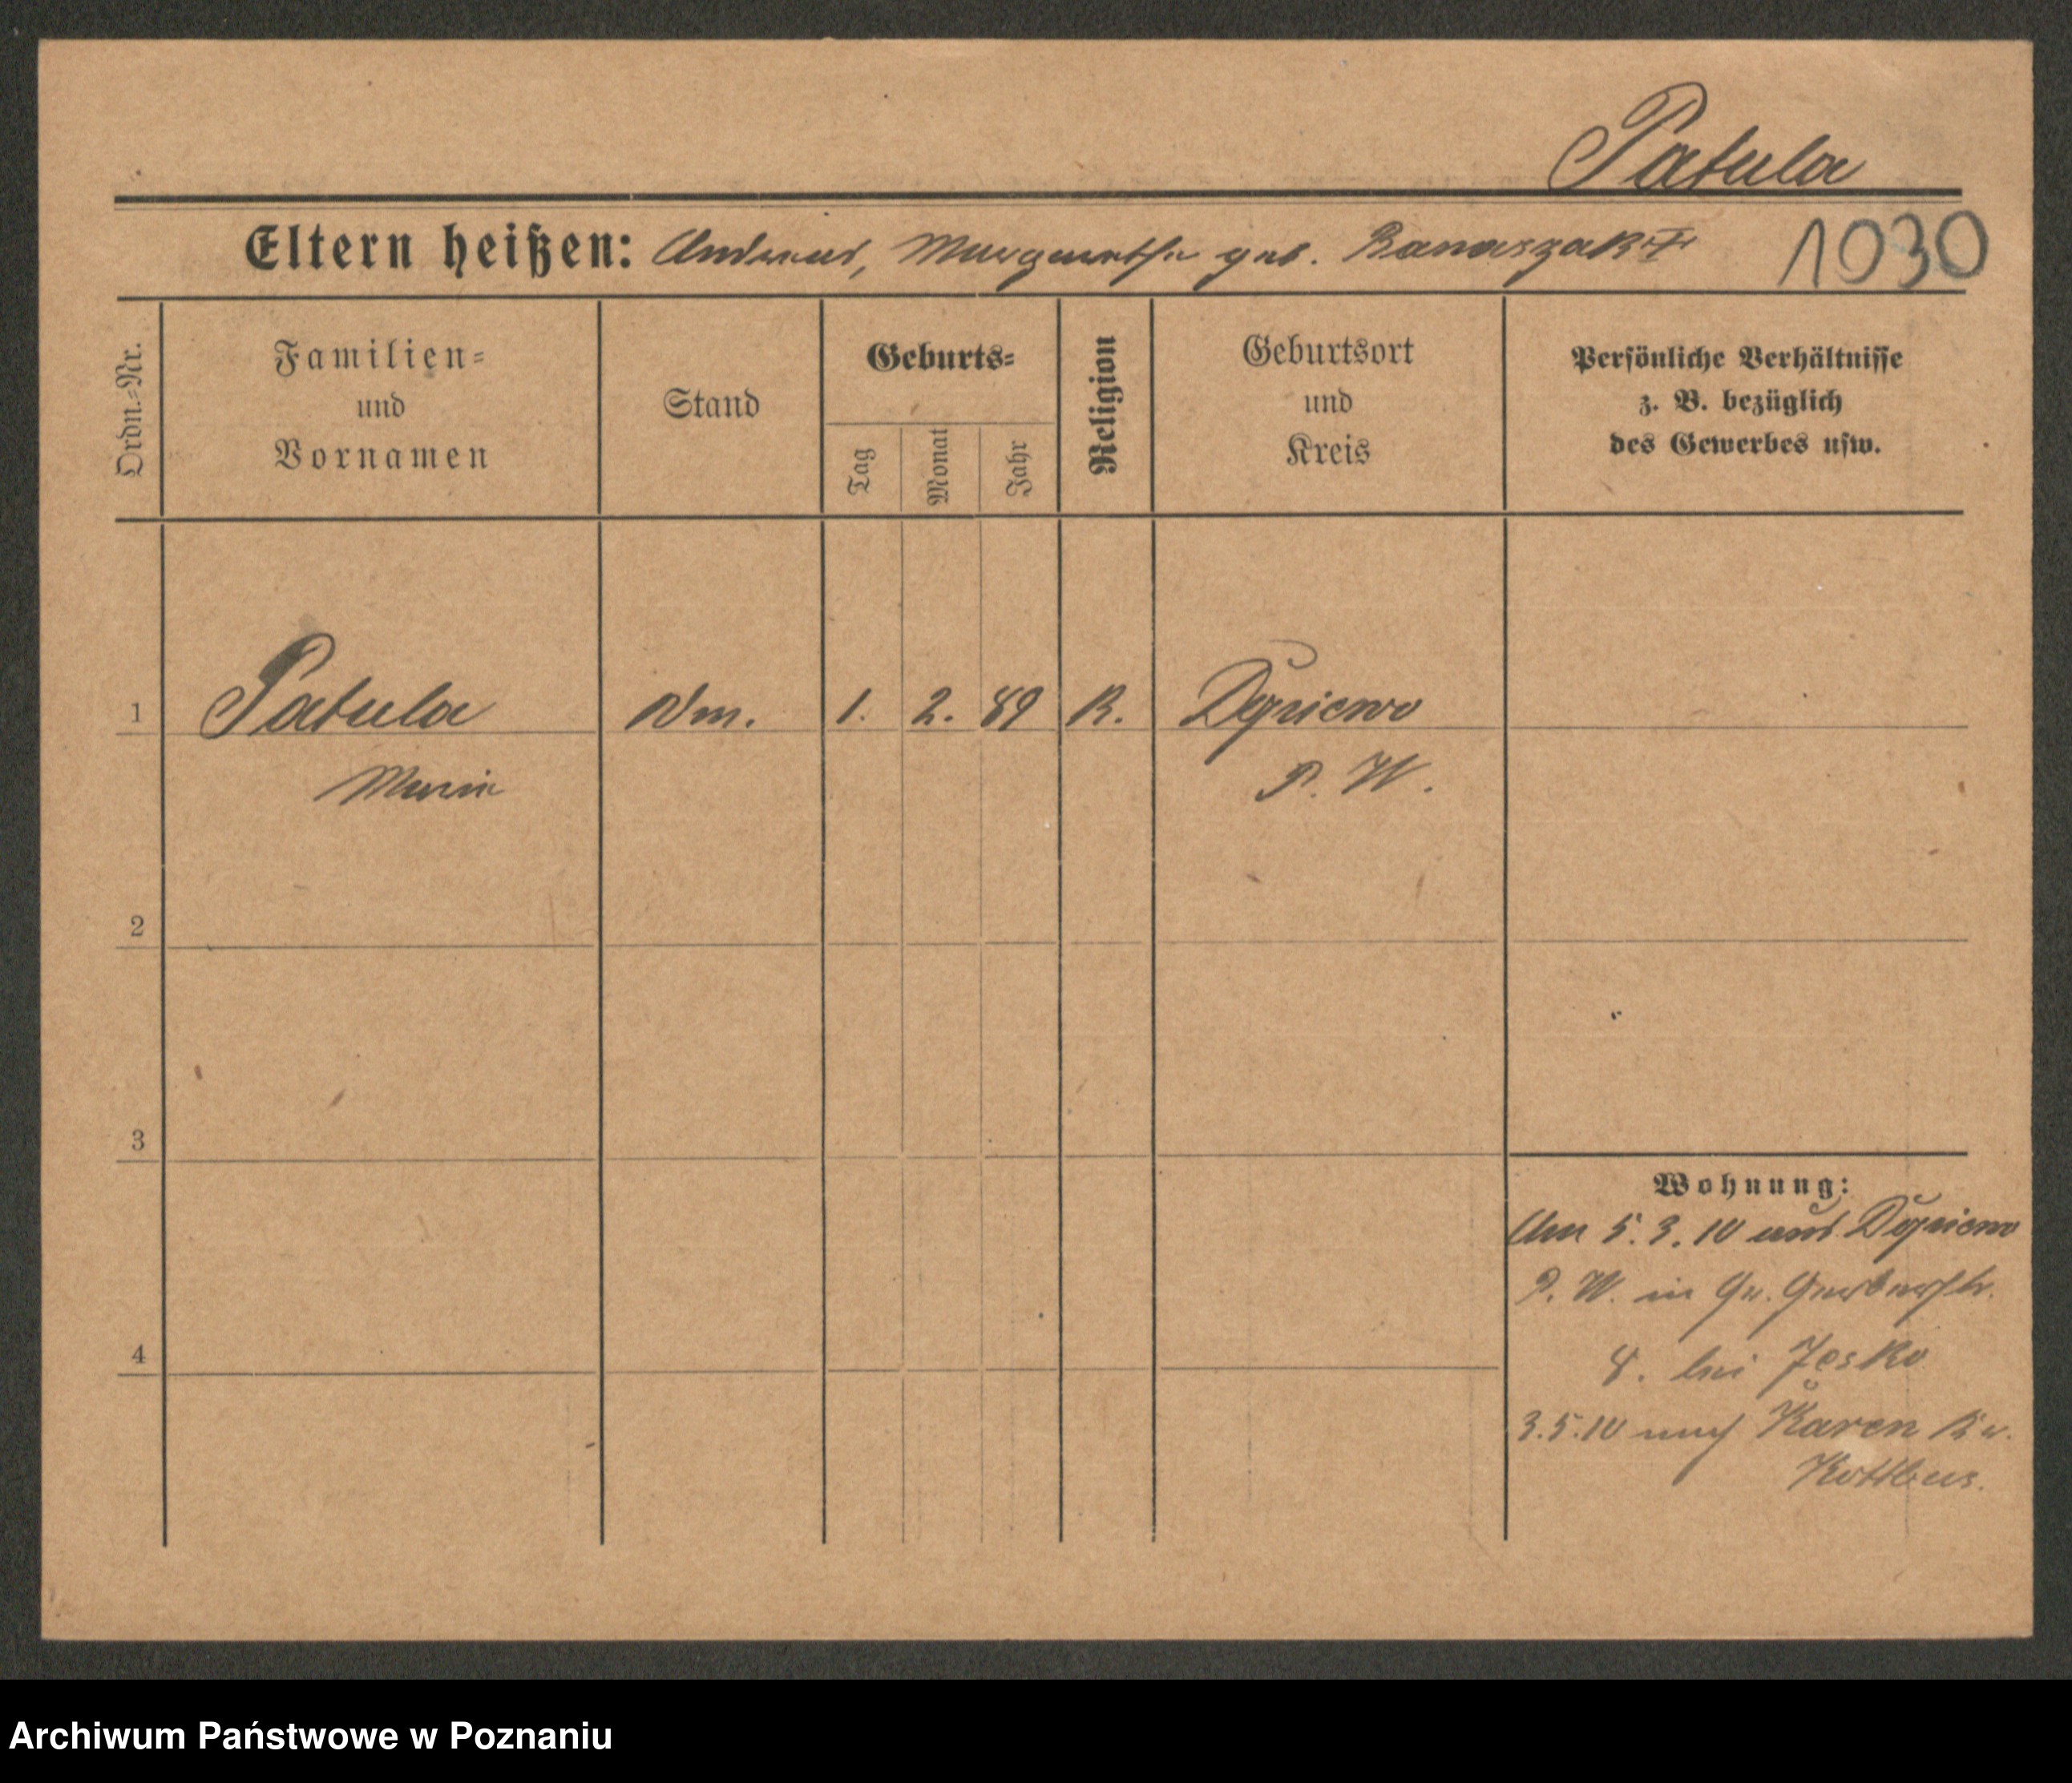 Patula
Eltern heißen: Andreas, Margarethe geb. Banaszak
1030
Ordn.-Nr.
Familien-
und
Vornamen
Stand
Geburts-
Tag
Monat
Jahr
Religion
Geburtsort
und
Kreis
Persönliche Verhältnisse
z. B. bezüglich
des Gewerbes usw.
1 Patula 1. 2. 89 K.
Marie P. W.
2
3
4
Wohnung:
Am 5. 3. 10 aus
P. W. in Gr. Gerberstr.
8. bei Jesko
3.5.10 nach Karen Kr.
Kottbus.
Archiwum Państwowe w Poznaniu